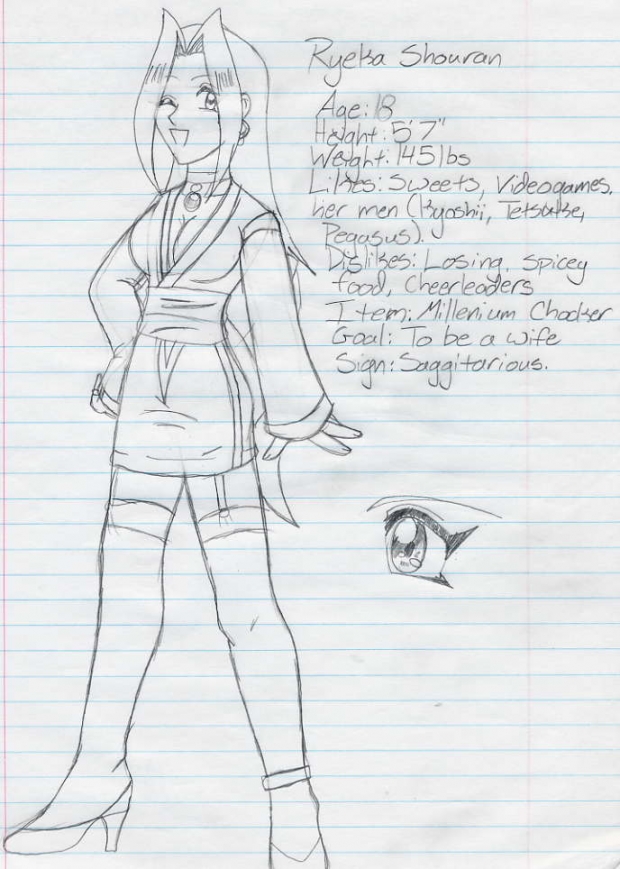 Ryeka Shouran
Age: 18
Height: 5'7"
Weight: 145lbs
Likes: Sweets, Videogames,
her men (Kyoshii, Tetsuke,
Pegasus).
Dislikes: Losing, spicey
food, Cheerleaders
Item: Millenium Chocker
Goal: To be a wife
Sign: Saggitarious.